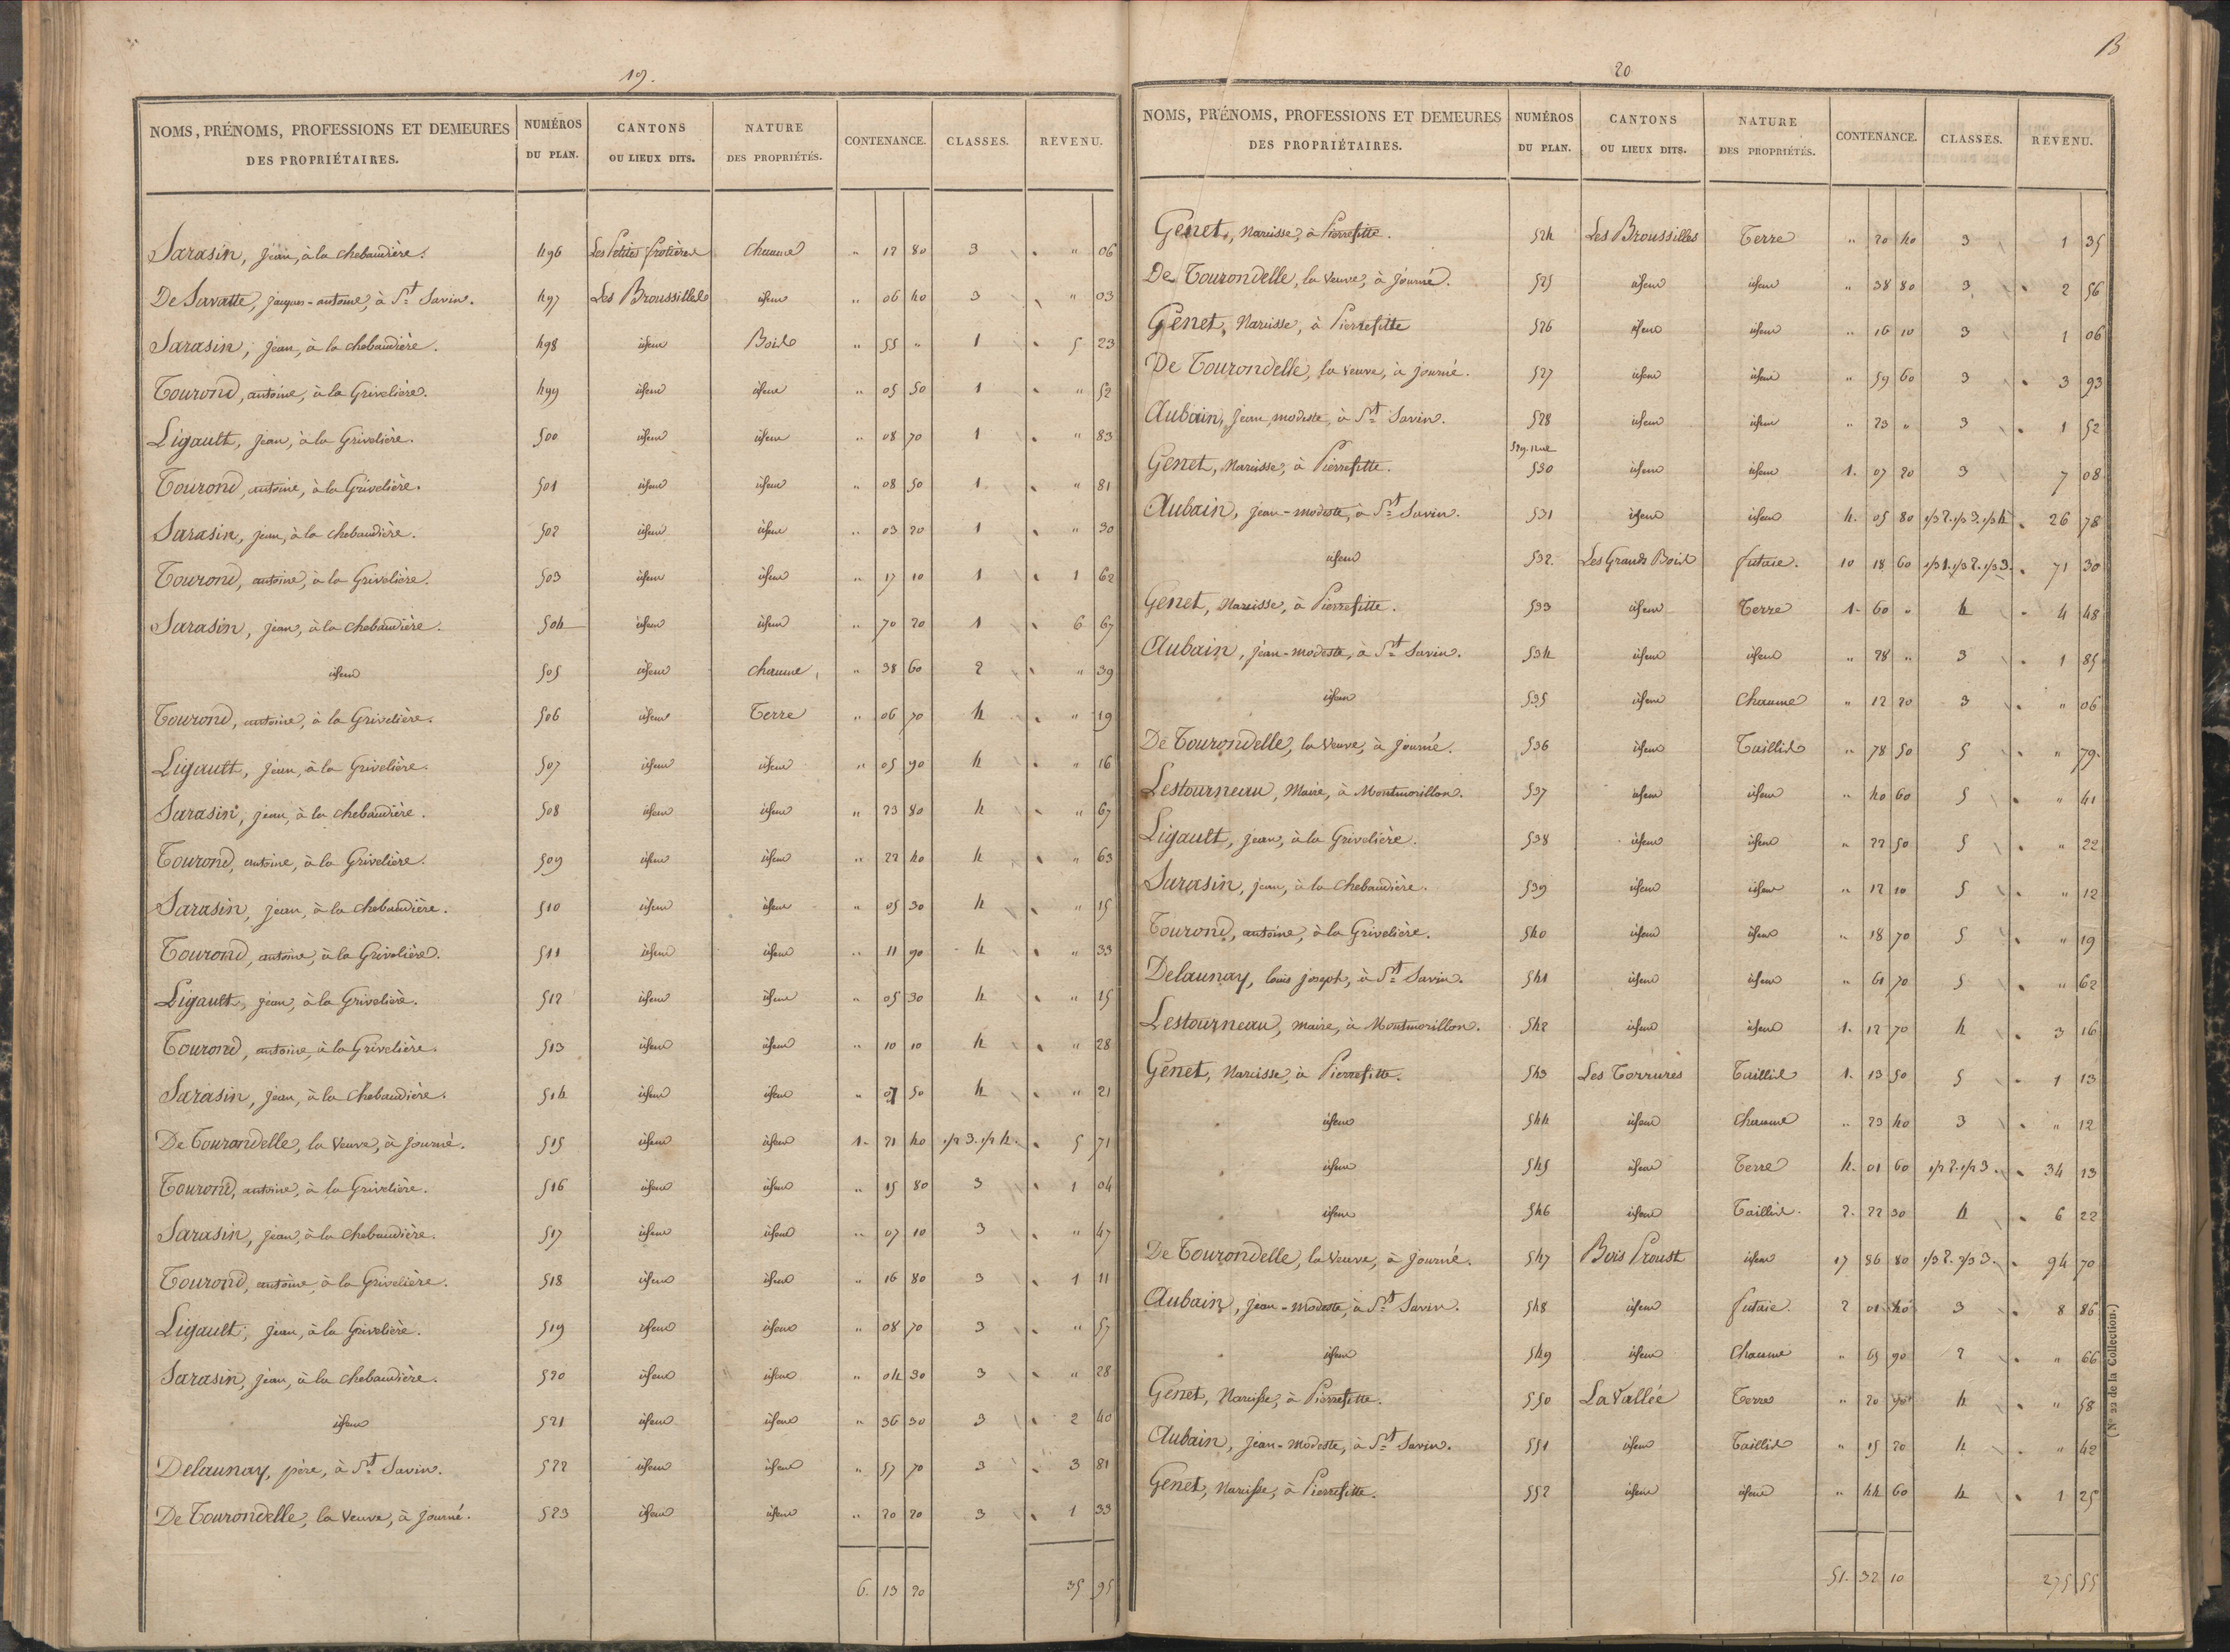 19.
NOMS, PRÉNOMS, PROFESSIONS ET DEMEURES DES PROPRIÉTAIRES. NUMÉROS DU PLAN. CANTONS OU LIEUX DITS. NATURE DES PROPRIÉTÉS. CONTENANCE. CLASSES. REVENU.
Sarasin, jean, à la chebaudière. 496 Les Petites chaume " 12 80 3 " 06
De Savatte, jacques-antoine, à St Savin. 497 Les Broussilles idem " 06 40 3 " 03
Sarasin, jean, à la chebaudière. 498 idem Bois " 55 " 1 5 23
Tourond, antoine, à la Grivelière. 499 idem idem " 05 50 1 " 52
Ligault, jean, à la Grivelière. 500 idem idem " 08 70 1 " 83
Tourond, antoine, à la Grivelière. 501 idem idem " 08 50 1 " 81
Sarasin, jean, à la chebaudière. 502 idem idem " 03 20 1 " 30
Tourond, antoine, à la Grivelière. 503 idem idem " 17 10 1 1 62
Sarasin, jean, à la chebaudière. 504 idem idem " 70 20 1 6 67
idem 505 idem chaume " 38 60 2 " 39
Tourond, antoine, à la Grivelière. 506 idem Terre " 06 70 4 " 19
Ligault, jean, à la Grivelière. 507 idem idem " 05 90 4 " 16
Sarasin, jean, à la chebaudière. 508 idem idem " 23 80 4 " 67
Tourond, antoine, à la Grivelière. 509 idem idem " 22 40 4 " 63
Sarasin, jean, à la chebaudière. 510 idem idem " 05 30 4 " 15
Tourond, antoine, à la Grivelière. 511 idem idem " 11 90 4 " 33
Ligault, jean, à la Grivelière. 512 idem idem " 05 30 4 " 15
Tourond, antoine, à la Grivelière. 513 idem idem " 10 10 4 " 28
Sarasin, jean, à la chebaudière. 514 idem idem " 07 50 4 " 21
De Tourondelle, la veuve, à journé. 515 idem idem 1. 21 40 1/2 3. 1/2 4. 5 71
Tourond, antoine, à la Grivelière. 516 idem idem " 15 80 3 1 04
Sarasin, jean, à la chebaudière. 517 idem idem " 07 10 3 " 47
Tourond, antoine, à la Grivelière. 518 idem idem " 16 80 3 1 11
Ligault, jean, à la Grivelière. 519 idem idem " 08 70 3 " 57
Sarasin, jean, à la chebaudière. 520 idem idem " 04 30 3 " 28
idem 521 idem idem " 36 30 3 2 40
Delaunay, père, à St Savin. 522 idem idem " 57 70 3 3 81
De Tourondelle, la veuve, à journé. 523 idem idem " 20 20 3 1 33
6. 13 20 35 95
B
20
NOMS, PRÉNOMS, PROFESSIONS ET DEMEURES DES PROPRIÉTAIRES. NUMÉROS DU PLAN. CANTONS OU LIEUX DITS. NATURE DES PROPRIÉTÉS. CONTENANCE. CLASSES. REVENU.
Genet, Narcisse, à Pierrefitte. 524 Les Broussilles Terre " 20 40 3 1 35
De Tourondelle, la veuve, à journé. 525 idem idem " 38 80 3 2 56
Genet, Narcisse, à Pierrefitte 526 idem idem " 16 10 3 1 06
De Tourondelle, la veuve, à journé. 527 idem idem " 59 60 3 3 93
Aubain, jean, modeste, à St Savin. 528 idem idem " 23 " 3 1 52
529. nul
Genet, Narcisse, à Pierrefitte. 530 idem idem 1. 07 20 3 7 08
Aubain, jean-modeste, à St Savin. 531 idem idem 4. 05 80 1/3 2. 1/3 3. 1/3 4. 26 78
idem 532. Les Grands Bois futaie. 10 18 60 1/3 1. 1/3 2. 1/3 3. 71 30
Genet, Narcisse, à Pierrefitte. 533 idem Terre 1. 60 " 4 4 48
Aubain, jean-modeste, à St Savin. 534 idem idem " 28 " 3 1 85
idem 535 idem chaume " 12 20 3 " 06
De Tourondelle, la veuve, à journé. 536 idem Taillis " 78 50 5 " 79
Lestourneau, Maire, à Montmorillon. 537 idem idem " 40 60 5 " 41
Ligault, jean, à la Grivelière. 538 idem idem " 22 50 5 " 22
Sarasin, jean, à la chebaudière. 539 idem idem " 12 10 5 " 12
Tourond, antoine, à la Grivelière. 540 idem idem " 18 70 5 " 19
Delaunay, louis joseph, à St Savin. 541 idem idem " 61 70 5 " 62
Lestourneau, maire, à Montmorillon. 542 idem idem 1. 12 70 4 3 16
Genet, Narcisse, à Pierrefitte. 543 Les Terrures Taillis 1. 13 50 5 1 13
idem 544 idem chaume " 23 40 3 " 12
idem 545 idem Terre 4. 01 60 1/2 2. 1/2 3. 34 13
idem 546 idem Taillis. 2. 22 30 4 6 22
De Tourondelle, la veuve, à journé. 547 Bois Proust idem 17 86 80 1/3 2. 2/3 3. 94 70
Aubain, jean-modeste, à St Savin. 548 idem futaie. 2 01 40 3 8 86
idem 549 idem chaume " 65 90 2 " 66
Genet, Narcisse, à Pierrefitte. 550 La Vallée Terre " 20 90 4 " 58
Aubain, jean-modeste, à St Savin. 551 idem Taillis " 15 20 4 " 42
Genet, Narcisse, à Pierrefitte. 552 idem idem " 44 60 4 1 25
51. 32 10 275 55
(N° 22 de la Collection.)